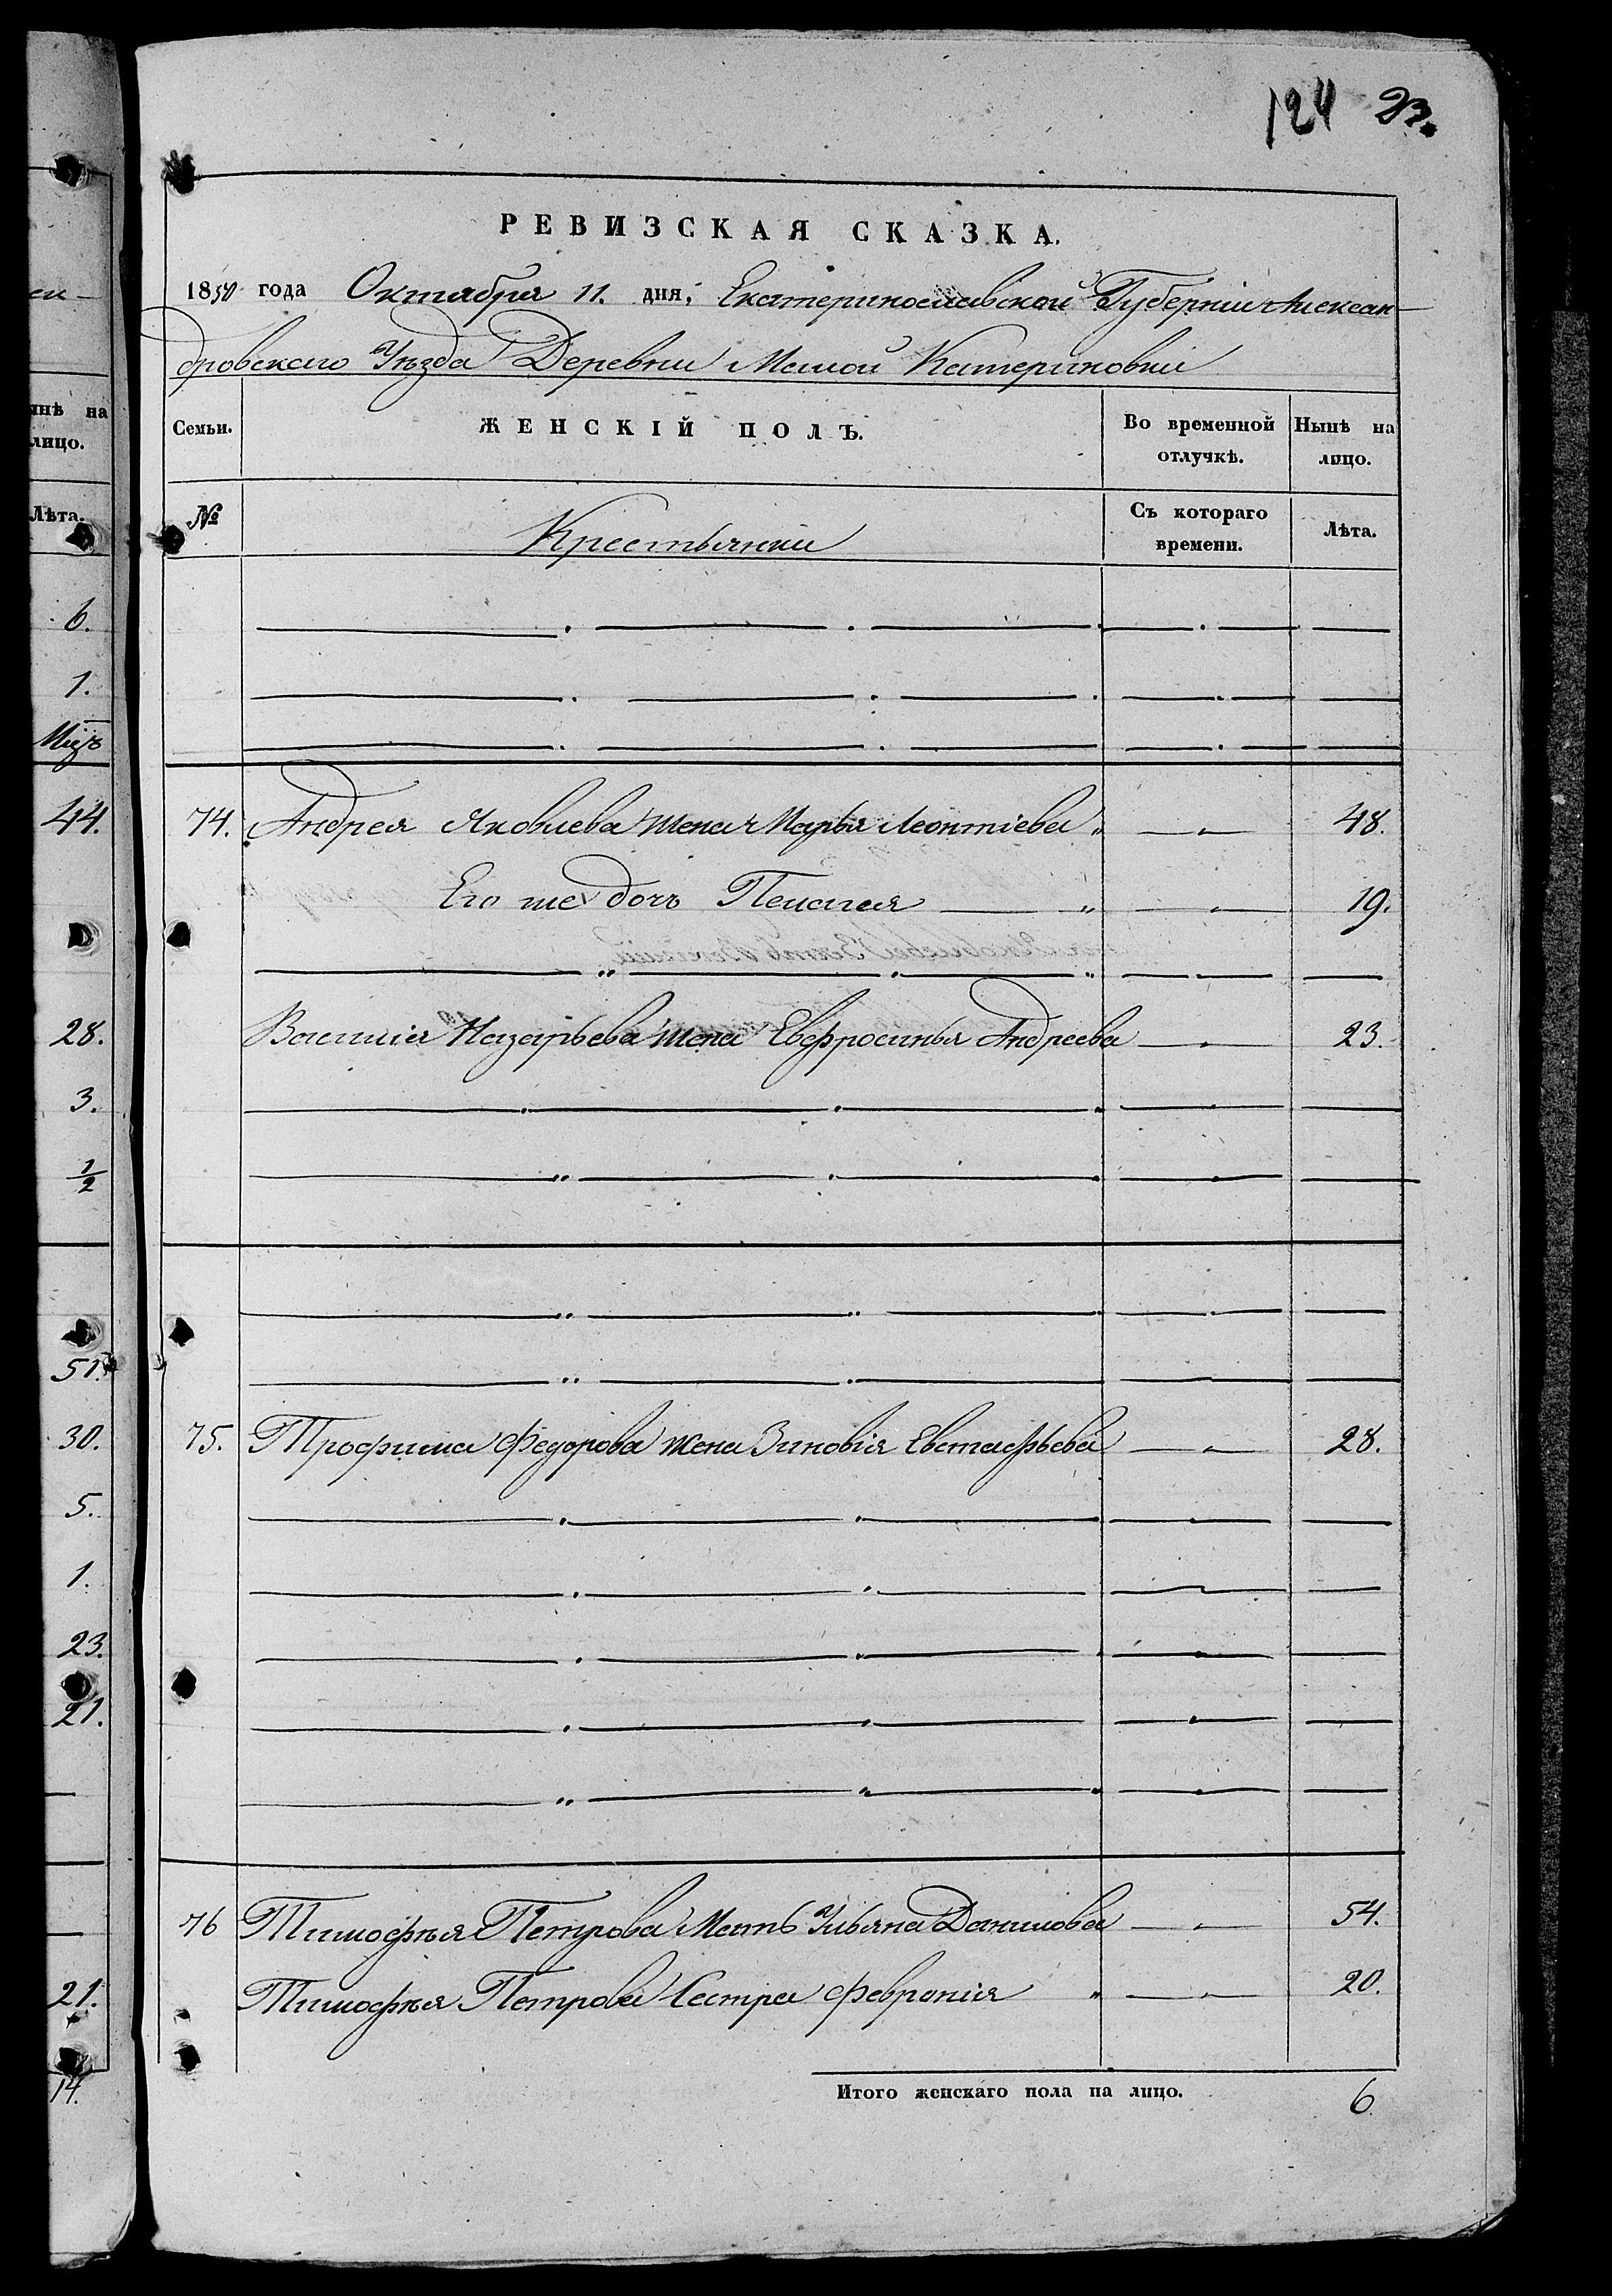 124 23.
РЕВИЗСКАЯ СКАЗКА.
1850 года Октября 11. дня, Екатеринославской Губерніи Алексан-
дровскаго Уѣзда Деревни Малой Катериновки
Семьи.
ЖЕНСКІЙ ПОЛЪ.
Во временной
отлучкѣ.
Нынѣ на
лицо.
№
Крестьянки
Съ котораго
времени.
Лѣта.
74. Андрея Яковлева жена Марья Леонтіева " 48.
Его же дочь Пелагея " 19.
Василія Назарьева жена Евфросинья Андреева 23.
75. Трофима Федорова жена Зиновія Евстафьева 28.
76 Тимофѣя Петрова Мать Ульяна Данилова 54.
Тимофѣя Петрова Сестра Февронія " 20.
Итого женскаго пола на лицо. 6.
нѣ на
лицо.
Лѣта.
6.
1.
44.
28.
3.
1/2
51.
30.
5.
1.
23.
21.
21.
14.